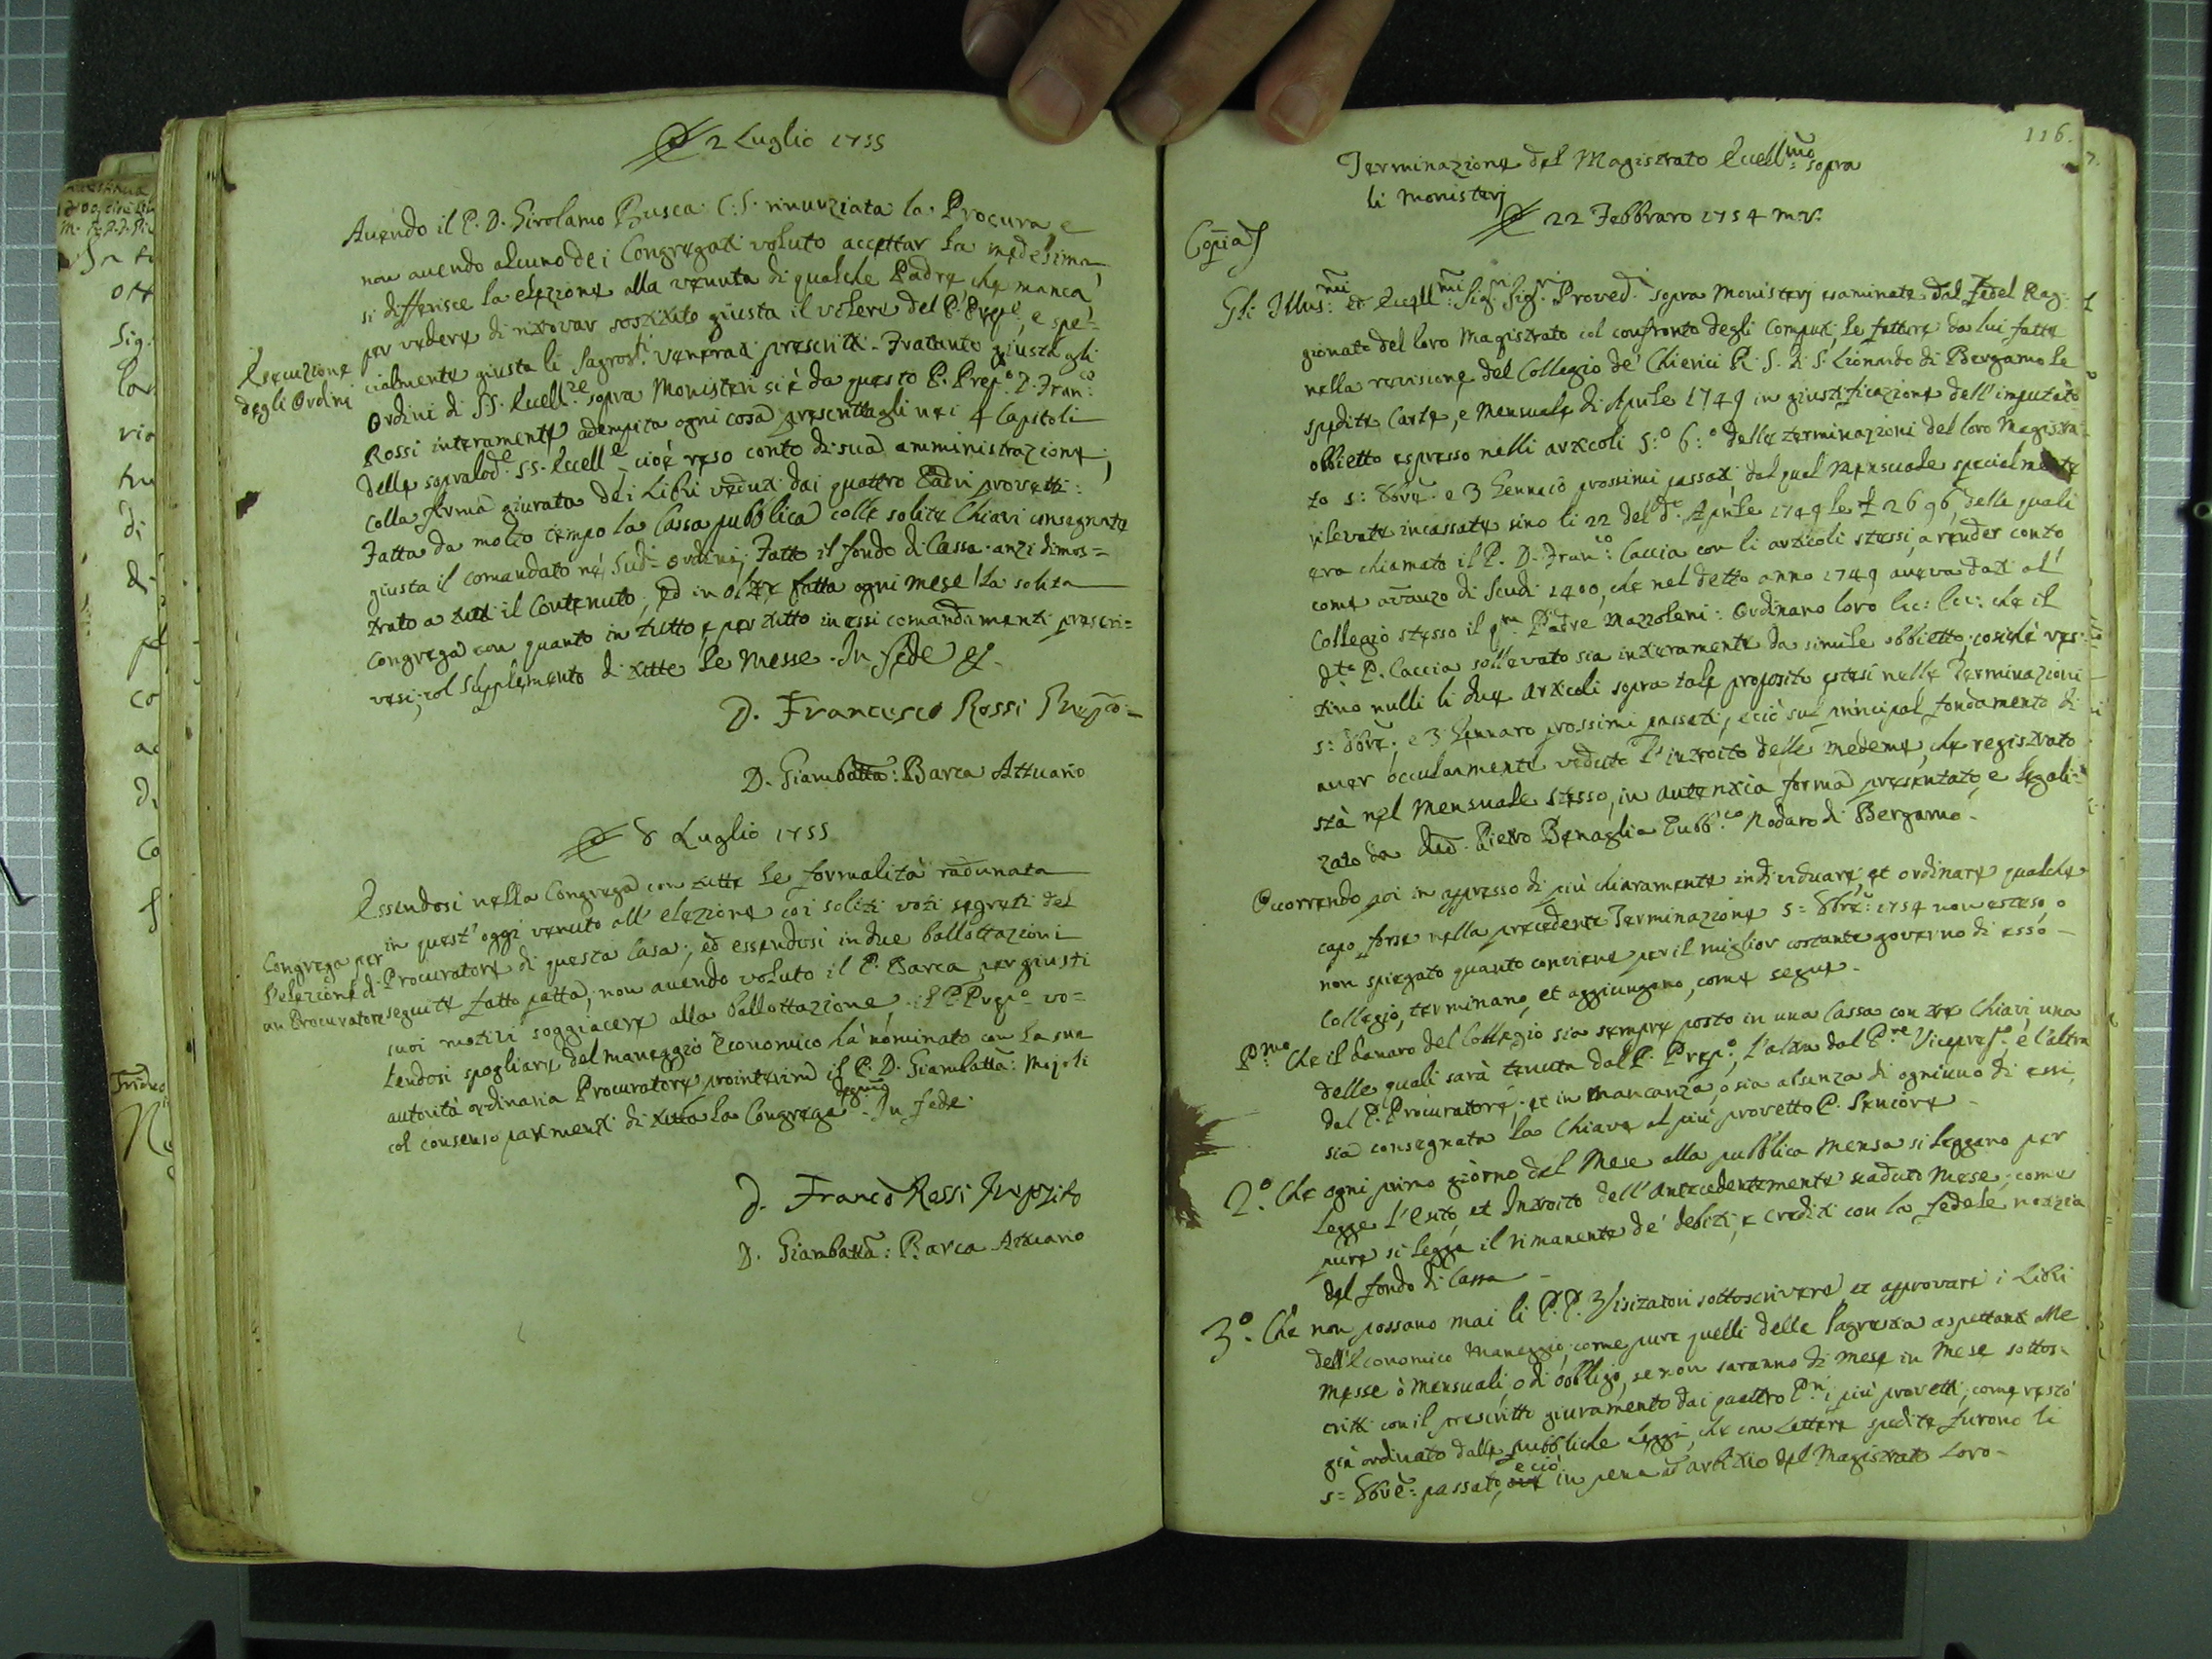 2 Luglio 1755
Avendo il P. D. Girolamo Busca C:S. rinunziata la Procura e
non avendo alcuno dei Congregati voluto accettar la medesima,
si differisce la elezione alla venuta di qualche Padre che manca
per vedere di ritrovar sostituto giusta il volere del P. Prepo, e spe=
cialmente giusta li venerati prescritti. Fratanto giusta gli
Esecuzione
degli Ordini
Ordini di SS. Eccell.ze sopra Monisteri si è da questo P. Prepo. D. Fran.co
Rossi interamente adempita ogni cosa prescrittagli nei 4 Capitoli
delle sopralod.e SS. Eccell.e cioè reso conto di sua amministrazione,
colla firma giurata dei Libri veduti dai quattro Padri provetti:
Fatta da molto tempo la Cassa pubblica colle solite Chiavi consegnate
giusta il comandato ne' Sud.i ordini; Fatto il fondo di Cassa anzi dimos=
trato a tutti il Contenuto; ed in oltre fatta ogni mese la solita
Congrega con quanto in tutto e per tutto in essi comandamenti prescri=
vesi; col supplemento di tutte le Messe. In fede
D. Francesco Rossi Prepo.
D. Giambatta: Barca Attuario
8 Luglio 1755
Essendosi nella Congrega con tutte le formalità radunata
in quest' oggi venuto all' elezione coi soliti voti segreti del
Congrega per
l'elezione d'
un Procuratore
Procuratore di questa Casa; ed essendosi in due ballottazioni
seguite fatto patta, non avendo voluto il P. Barca per giusti
suoi motivi soggiacere alla ballottazione, il P. Prepo. vo=
lendosi spogliare del maneggio Economico hà nominato con la sua
autorità ordinaria Procuratore prointerim il P. D. Giambatta: Majoli
col consenso parimenti di tutta la Congrega. In fede
D. Franco Rossi Preposito
D. Giambatta: Barca Attuario
116.
Terminazione del Magistrato Eccell:mo sopra
li Monisterj
22 Febbraro 1754 m.v.
Copia
Gli Illus:mi et Eccell:mi Sig.ri Sig.ri Proved.i sopra Monisterj esaminate dal Fedel Rag:
gionato del loro Magistrato col confronto degli Computi, le fatture da lui fatte
nella revisione del Collegio de' Chierici R. S. di S. Lionardo di Bergamo le
spedite Carte, e Mensuale di Aprile 1749 in giustificazione dell' imputato
obbietto espresso nelli articoli 5:o 6:o delle terminazioni del loro Magistra=
to 5: 8bre. e 3 Gennaro prossimi passati dal qual Mensuale specialmente
rilevate incassate sino li 22 del d.o Aprile 1749 le £ 2696, delle quali
era chiamato il P. D. Fran.co: Caccia con li articoli stessi a render conto
come avanzo di Scudi 1400, che nel detto anno 1749 aveva dati al
Collegio stesso il q.m Padre Mazzoleni: Ordinano loro Ecc: Ecc: che il
d.to P. Caccia sollevato sia interamente da simile obbietto, cosichè res=
tino nulli li due articoli sopra tale proposito estesi nelle Terminazioni
5: 8bre. e 3 Gennaro prossimi passati, e ciò sul principal fondamento di
aver occularmente veduto l' introito delle medeme, che registrato
stà nel Mensuale stesso, in autentica forma presentato, e legali=
zato da Pietro Benaglia Pubb.co Nodaro di Bergamo.
Occorrendo poi in appresso di più chiaramente individuare, et ordinare qualche
capo forse nella precedente Terminazione 5= 8bre: 1754 non esteso, o
non spiegato quanto conviene per il miglior costante governo di esso
Collegio, terminano, et aggiungono, come segue.
P.mo Che il danaro del Collegio sia sempre posto in una Cassa con tre Chiavi una
delle quali sarà tenuta dal P. Prepo., l'altra dal P.re Viceprepo. e l'altra
dal P. Procuratore; et in mancanza, o sia absenza di ognuno di essi,
sia consegnata la Chiave al più provetto P. Seniore.
2.o Che ogni primo giorno del Mese alla pubblica Mensa si leggano per
Legge l'Esito, et Introito dell' Antecedentemente scaduto Mese; come
pure si legga il rimanente de' debiti, e crediti con la fedele notizia
del fondo di Cassa.
3.o Che non possano mai li P.P. Visitatori sottoscrivere et approvare i Libri
dell' Economico Maneggio, come pure quelli della Sagrestia aspettanti alle
Messe ò Mensuali, o di obbligo, se non saranno di Mese in Mese sottos=
critti con il prescritto giuramento dai quattro P.ri più provetti, come restò
già ordinato dalle pubbliche Leggi, che con Lettere spedite furono li
5= 8bre= passato, e ciò in pena ad arbitrio del Magistrato Loro.